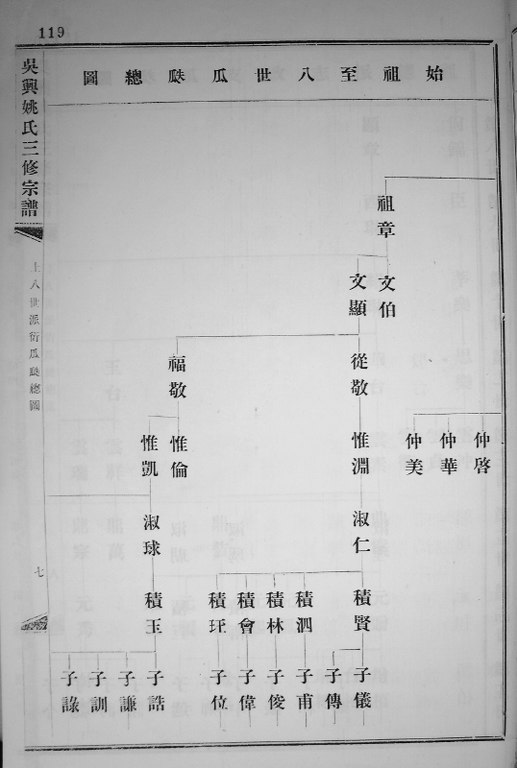 119
始祖至八世瓜瓞總圖
吳興姚氏三修宗譜
上八世派衍瓜瓞總圖
七
祖章
文伯
文顯
從敬
福敬
仲啓
仲華
仲美
惟淵
惟倫
惟凱
淑仁
淑球
積賢
積泗
積林
積會
積玨
積玉
子儀
子傳
子甫
子俊
子偉
子位
子誥
子謙
子訓
子諑